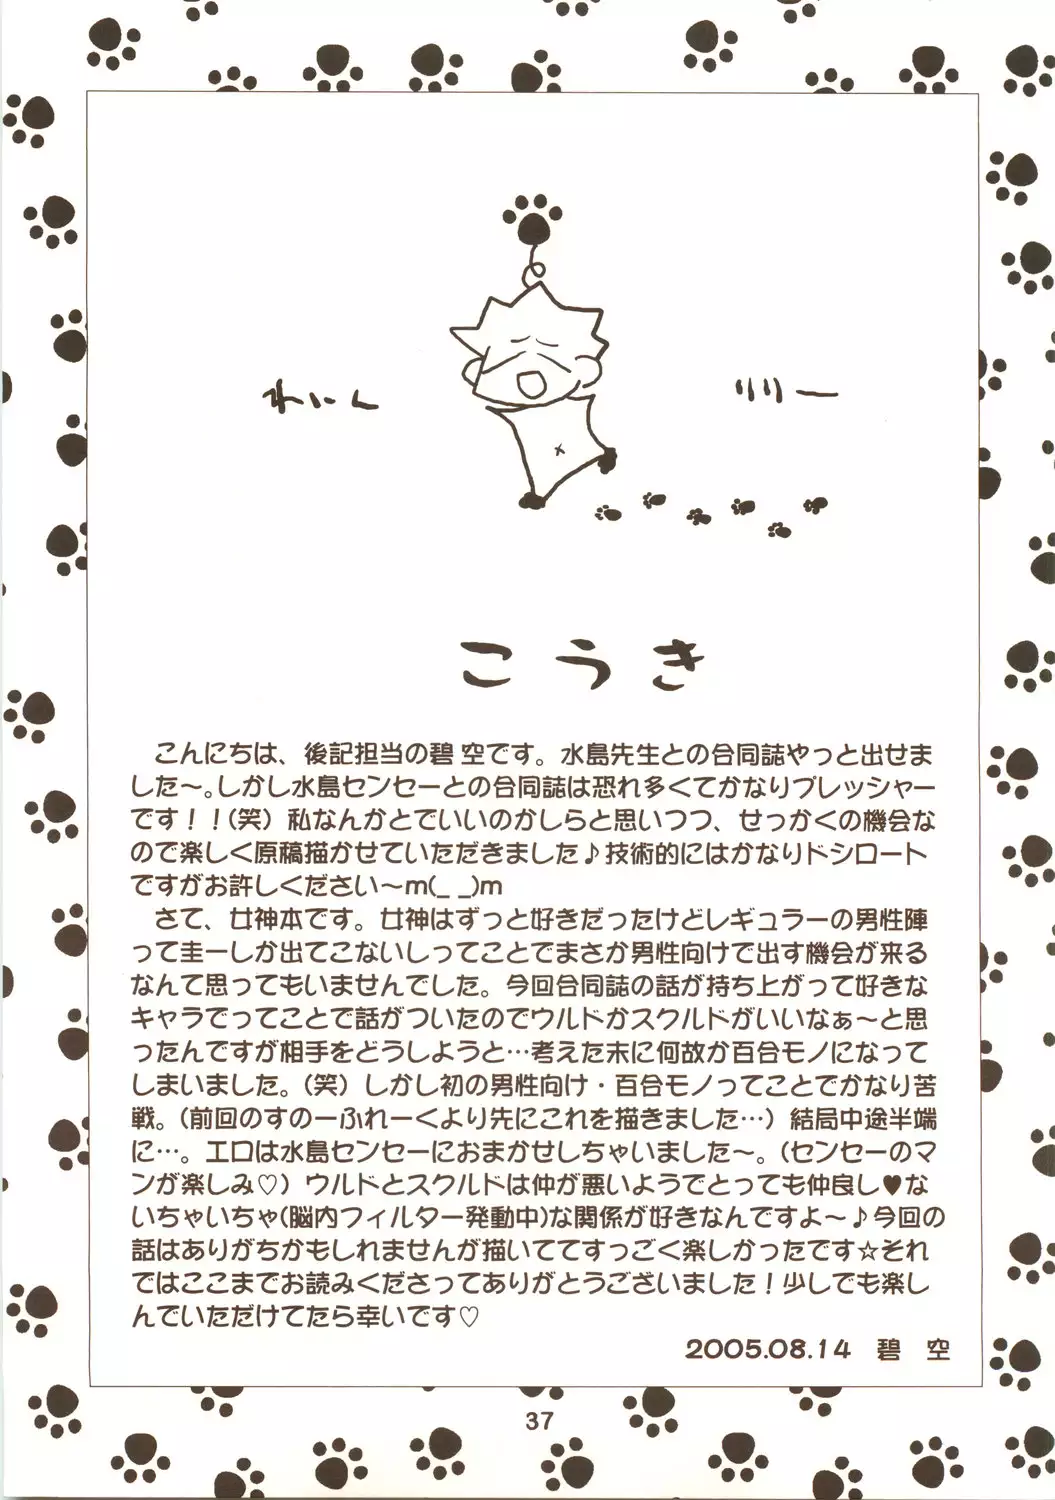 れいにん
リリー
こうき
こんにちは、後記担当の碧 空です。水島先生との合同誌やっと出せま
した～。しかし水島センセーとの合同誌は恐れ多くてかなりプレッシャー
です！！(笑) 私なんかとでいいのかしらと思いつつ、せっかくの機会な
ので楽しく原稿描かせていただきました♪技術的にはかなりドシロート
ですがお許しください～m(_ _)m
さて、女神本です。女神はずっと好きだったけどレギュラーの男性陣
って圭一しか出てこないしってことでまさか男性向けで出す機会が来る
なんて思ってもいませんでした。今回合同誌の話が持ち上がって好きな
キャラでってことで話がついたのでウルドかスクルドがいいなぁ～と思
ったんですが相手をどうしようと…考えた末に何故か百合モノになって
しまいました。(笑) しかし初の男性向け・百合モノってことでかなり苦
戦。(前回のすのーふれーくより先にこれを描きました…) 結局中途半端
に…。エロは水島センセーにおまかせしちゃいました～。(センセーのマ
ンが楽しみ♡) ウルドとスクルドは仲が悪いようでとっても仲良し♥な
いちゃいちゃ(脳内フィルター発動中)な関係が好きなんですよ～♪今回の
話はありがちかもしれませんが描いててすっごく楽しかったです☆それ
ではここまでお読みくださってありがとうございました！少しでも楽し
んでいただけてたら幸いです♡
2005.08.14 碧 空
37